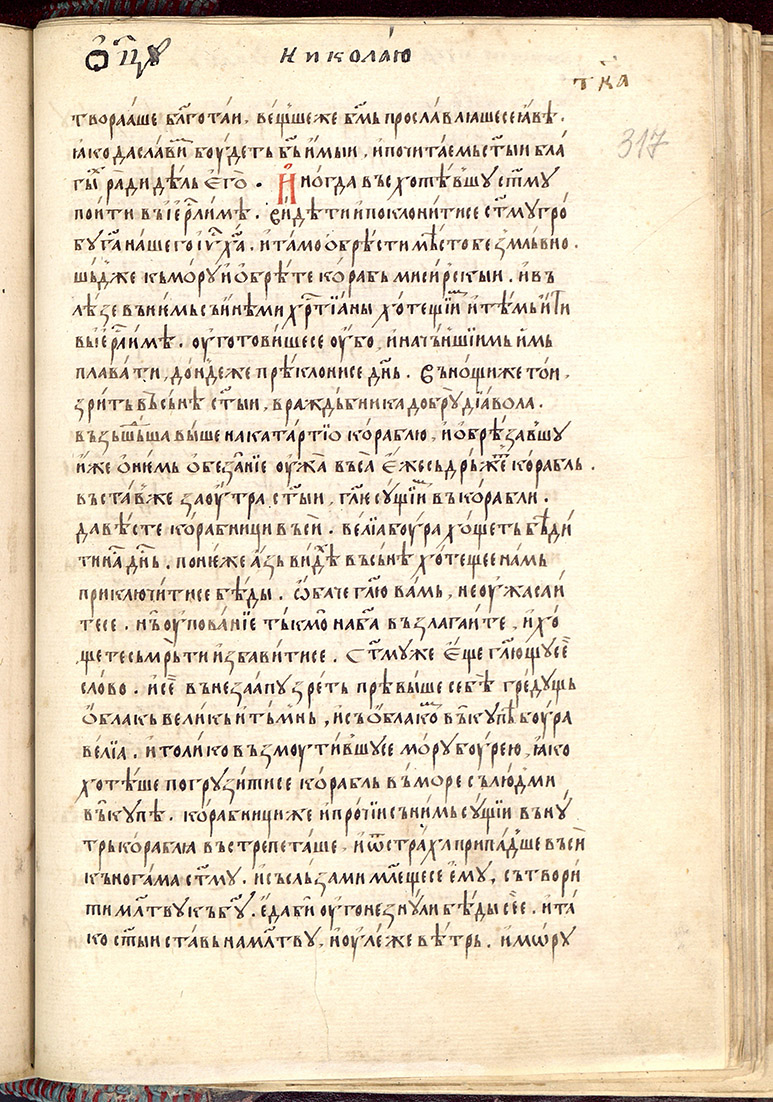 ѻ҆ц҃ꙋ
николаю
тк҃а
317
творꙗше бл҃готаи, вещшеже бг҃мь прославлꙗшесе ꙗвѣ.
ꙗко да славим боудеть бг҃ь имы, и почитаемь ст҃ыи бла
гы҃и ради дѣль ѥго. Иногда въсхотѣвшу ст҃му
поити въ іерс҃лимѣ. видѣти и поклонитисе ст҃му гро
бу га҃ нашего іу҃ ха҃. и тамо обрѣсти мѣсто безмльвно.
шьдже кь морꙋ и обрѣте корабь мисирскыи. и въ
лѣзе въ нѥмь съ инѣми хрс҃тіаны хотещіим и тѣмь ити
въ іерс҃лимѣ. оуготовишесе оубо, и начьншіимь имь
плавати, дондеже прѣклонисе дн҃ь. Въ нощи же тои,
зрить въ сьнѣ ст҃ыи, враждьбника добрꙋ діавола.
възьшьша выше на катартїю кораблю, и обрѣзавшу
иже о нѥмь обезаніе оужа въса ѥже сьдрьже корабль.
въставже заоутра ст҃ыи, гл҃ѥ сущіим въ корабли.
да вѣсте корабници въси. велїа боура хощеть быди
ти на дн҃ь. понѥже азь видѣ въ сьнѣ хотещеѥ намь
приключитисе бѣды. ѡбаче гл҃ю вамь, не оужасаи
тесе. нь оупованїе тькмо на ба҃ възлагаите, и хо
щеть съмрьти избавитисе. Ст҃муже ѥще гл҃ющу сѥ
слово. и се вънезаапу зреть прѣвыше себѣ гредꙋщь
облакь великь и тьмнь, и съ облаком въкупѣ боура
велїа. и толико възмоутившусе морꙋ боурею, ꙗко
хотѣше погрузитисе корабль въ море съ людми
въкупѣ. корабници же и прочїи сь нимь сущїи вьну
трь кораблꙗ въстрепеташе, и ѿ страха припадше въси
къ ногама ст҃му. и съ сльзами мл҃ещесе ѥму, сътвори
ти мл҃тву къ бг҃у. ѥда би оугонезнули бѣды сеѥ. и та
ко ст҃ыи ставь на мл҃тву, и оулеже вѣтрь. и мѡрꙋ